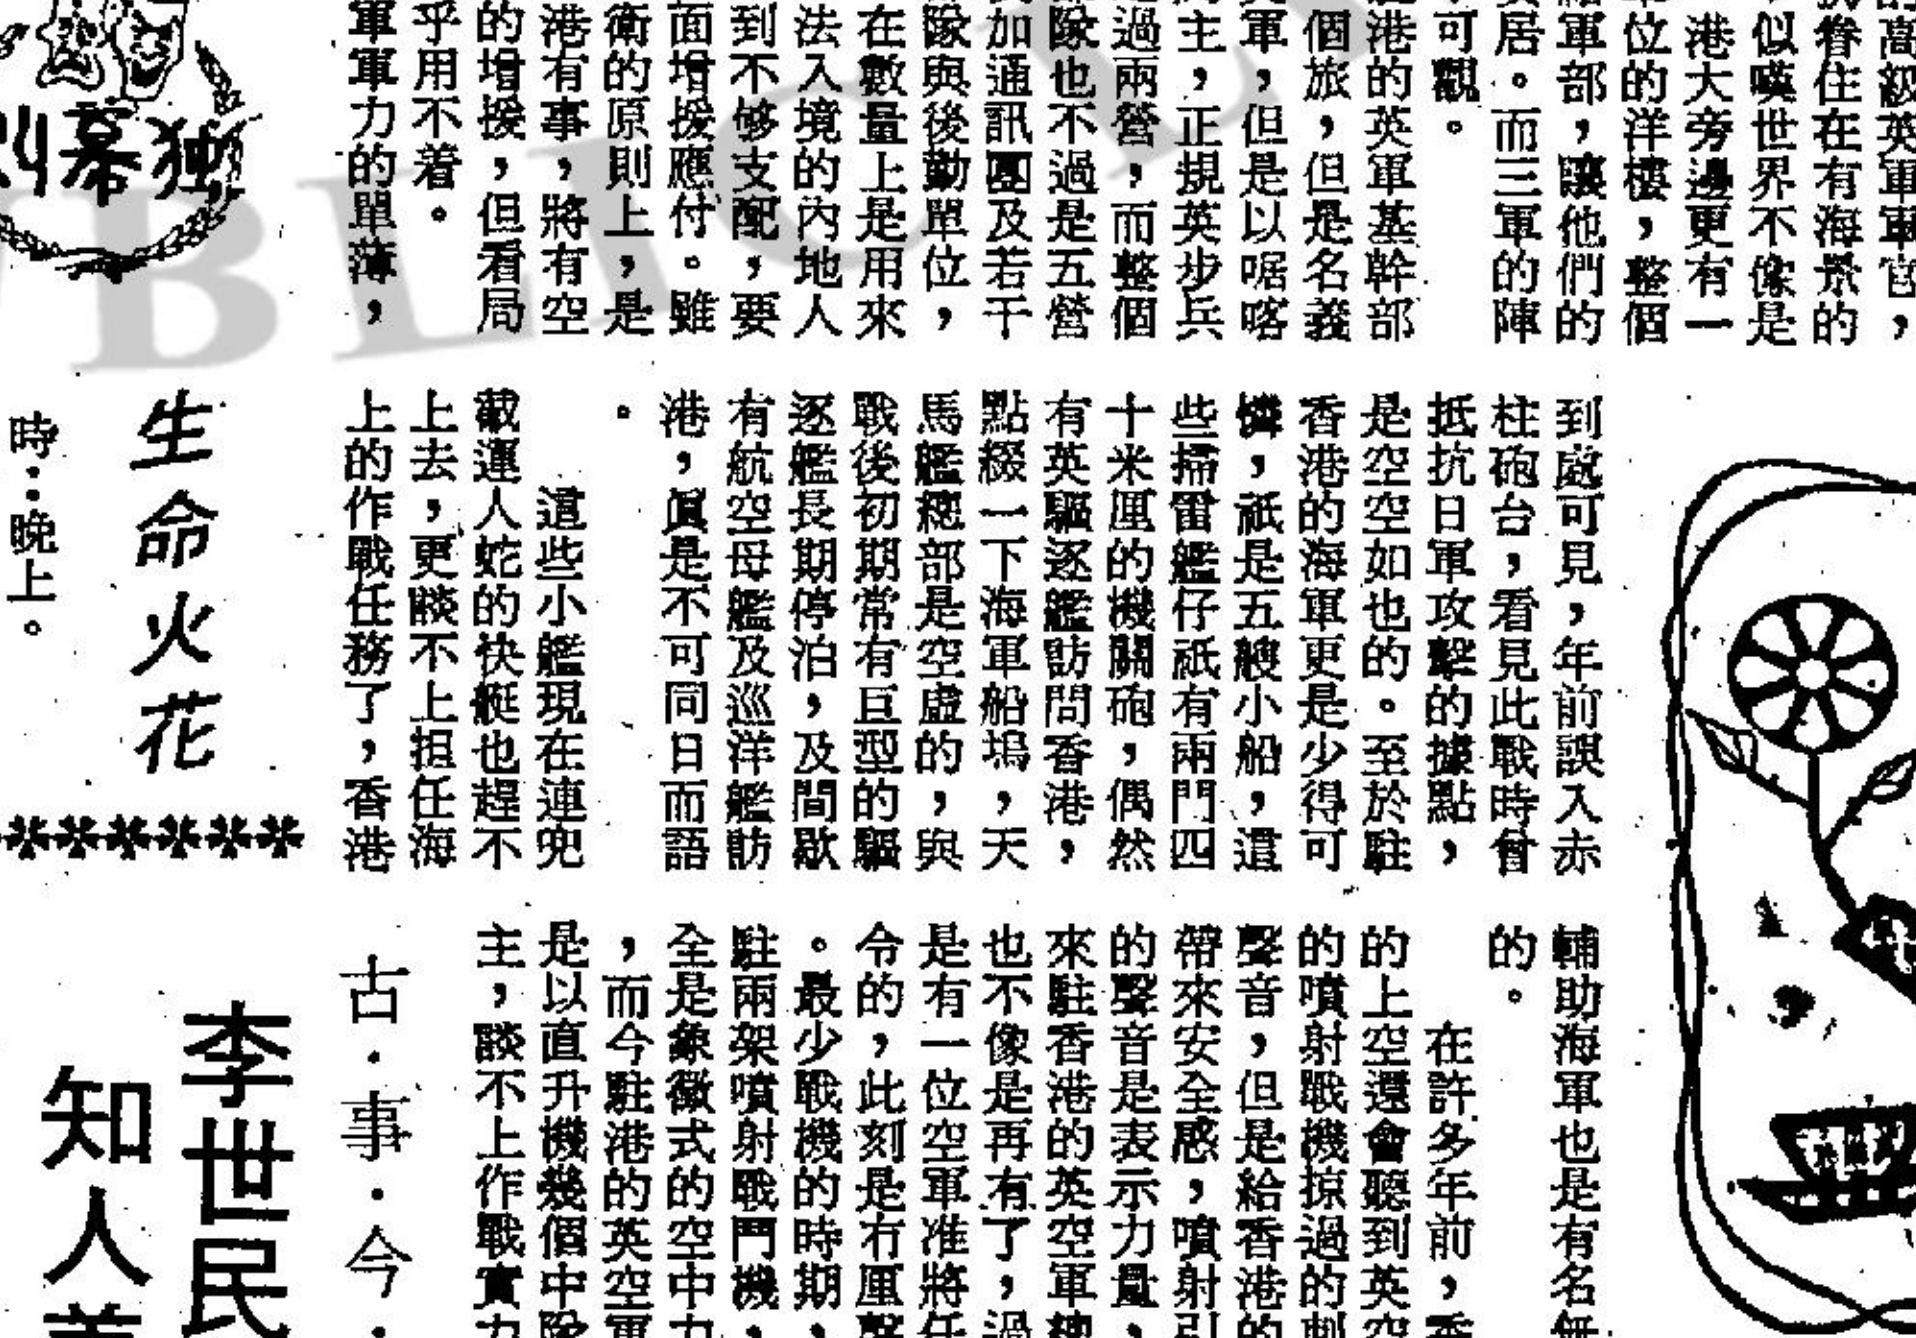 的高級英軍軍官，
眷住在有海景的
似嘆世界不像是
港大旁邊更有一
位的洋樓，整個
軍部，讓他們的
居。而三軍的陣
可觀。
港的英軍基幹部
個旅，但是名義
軍，但是以啹喀
主，正規英步兵
過兩營，而整個
隊也不過是五營
加通訊團及若干
隊與後勤單位，
在數量上是用來
法入境的內地人
到不够支配，要
面增援應付。雖
衛的原則上，是
港有事，將有空
的增援，但看局
乎用不着。
軍軍力的單薄，
独幕
到處可見，年前誤入赤
柱砲台，看見此戰時曾
抵抗日軍攻擊的據點，
是空空如也的。至於駐
香港的海軍更是少得可
憐，祇是五艘小船，這
些掃雷艦仔祇有兩門四
十米厘的機關砲，偶然
有英驅逐艦訪問香港，
點綴一下海軍船塢，天
馬艦總部是空虛的，與
戰後初期常有巨型的驅
逐艦長期停泊，及間歇
有航空母艦及巡洋艦訪
港，眞是不可同日而語
。
這些小艦現在連兜
截運人蛇的快艇也趕不
上去，更談不上担任海
上的作戰任務了，香港
生命火花
時：晚上。
輔助海軍也是有名無
的。
在許多年前，香
的上空還會聽到英空
的噴射戰機掠過的刺
聲音，但是給香港的
帶來安全感，噴射引
的聲音是表示力量，
來駐香港的英空軍總
也不像是再有了，過
是有一位空軍准將任
令的，此刻是冇厘聲
。最少戰機的時期，
駐兩架噴射戰鬥機，
全是象徵式的空中力
，而今駐港的英空軍
是以直升機幾個中隊
主，談不上作戰實力
古·事·今·
李世民
知人善